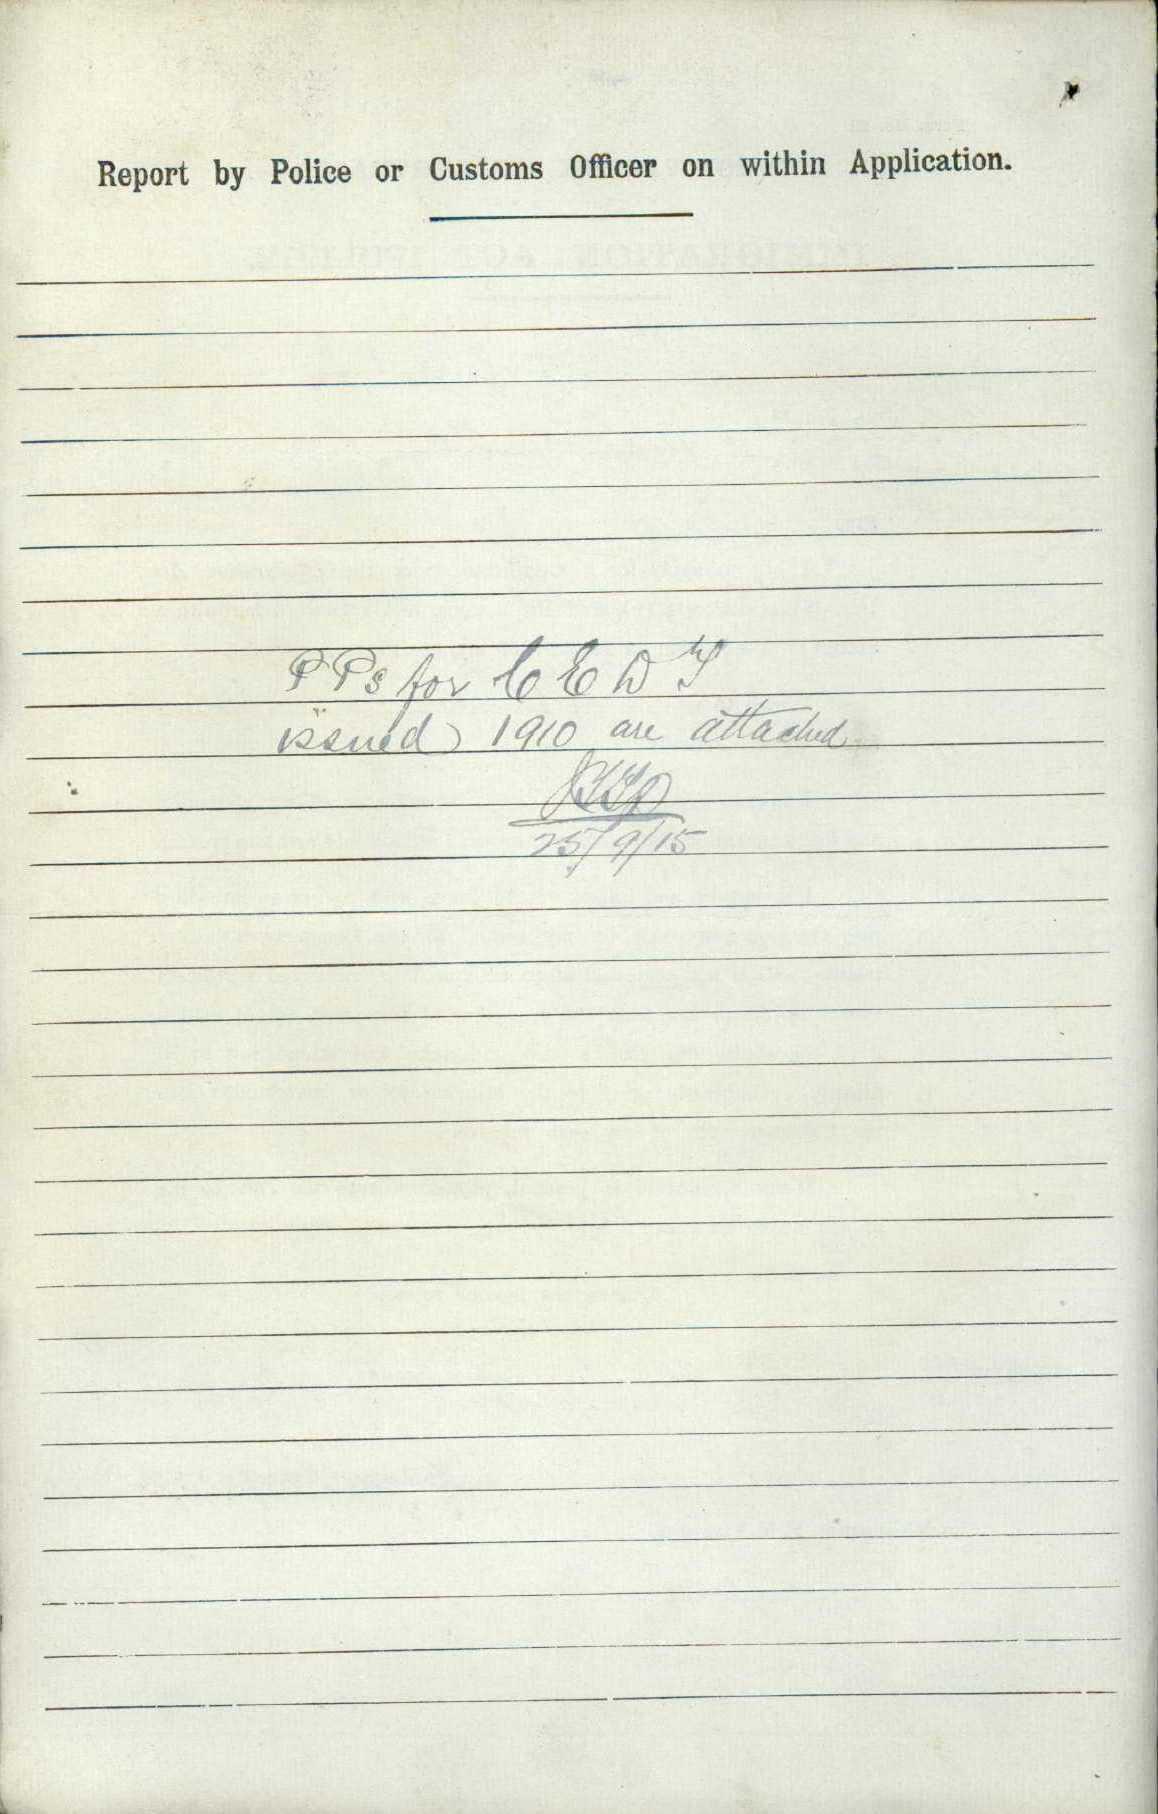 Report by Police or Customs Officer on within Application.
PPs for C E D T
issued 1910 are attached
25/9/15